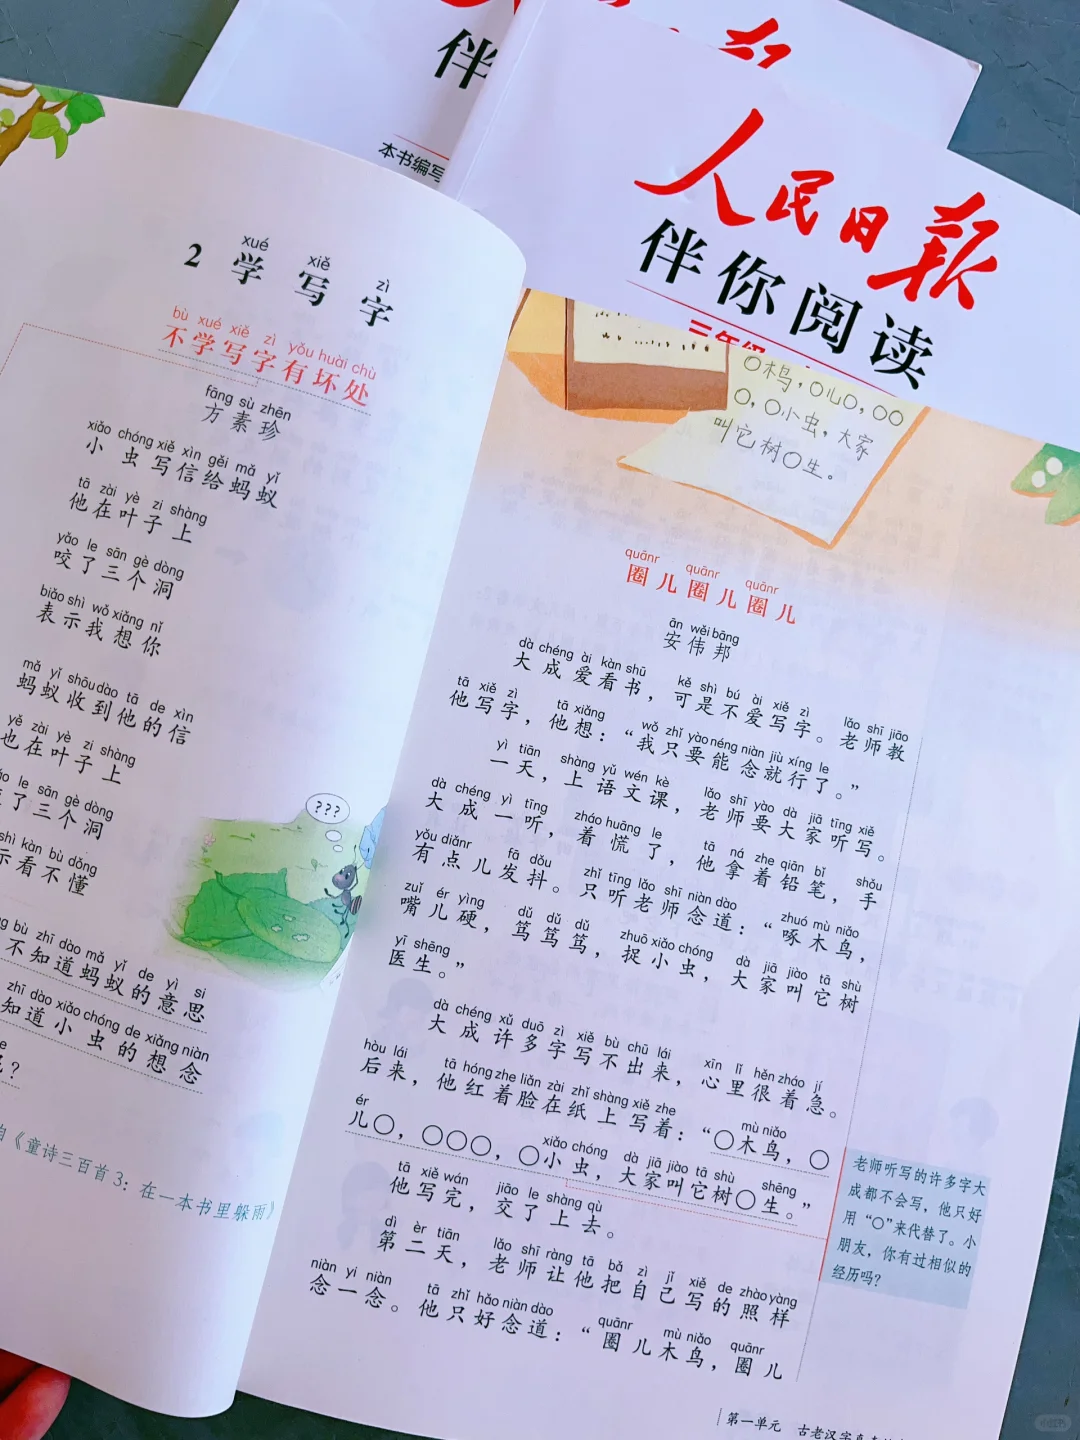 伴
本书编写
人民日报
伴你阅读
三年级
2 学写字
xué xiě zì
不学写字有坏处
bù xué xiě zì yǒu huài chù
fāng sù zhēn
方素珍
xiǎo chóng xiě xìn gěi mǎ yǐ
小虫写信给蚂蚁
tā zài yè zi shàng
他在叶子上
yǎo le sān gè dòng
咬了三个洞
biǎo shì wǒ xiǎng nǐ
表示我想你
mǎ yǐ shōu dào tā de xìn
蚂蚁收到他的信
yě zài yè zi shàng
也在叶子上
le sān gè dòng
了三个洞
shì kàn bù dǒng
示看不懂
bù zhī dào mǎ yǐ de yì si
不知道蚂蚁的意思
zhī dào xiǎo chóng de xiǎng niàn
知道小虫的想念
呢？
自《童诗三百首3：在一本书里躲雨》
???
○木鸟，○儿○，○○
○，○小虫，大家
叫它树○生。
quānr quānr quānr
圈儿圈儿圈儿
ān wěi bāng
安伟邦
dà chéng ài kàn shū kě shì bú ài xiě zì lǎo shī jiāo
大成爱看书，可是不爱写字。老师教
tā xiě zì tā xiǎng wǒ zhǐ yào néng niàn jiù xíng le
他写字，他想：“我只要能念就行了。”
yì tiān shàng yǔ wén kè lǎo shī yào dà jiā tīng xiě
一天，上语文课，老师要大家听写。
dà chéng yì tīng zháo huāng le tā ná zhe qiān bǐ shǒu
大成一听，着慌了，他拿着铅笔，手
yǒu diǎnr fā dǒu zhǐ tīng lǎo shī niàn dào zhuó mù niǎo
有点儿发抖。只听老师念道：“啄木鸟，
zuǐ ér yìng dǔ dǔ dǔ zhuō xiǎo chóng dà jiā jiào tā shù
嘴儿硬，笃笃笃，捉小虫，大家叫它树
yī shēng
医生。”
dà chéng xǔ duō zì xiě bù chū lái xīn lǐ hěn zháo jí
大成许多字写不出来，心里很着急。
hòu lái tā hóng zhe liǎn zài zhǐ shàng xiě zhe mù niǎo
后来，他红着脸在纸上写着：“○木鸟，○
ér xiǎo chóng dà jiā jiào tā shù shēng
儿○，○○○，○小虫，大家叫它树○生。”
tā xiě wán jiāo le shàng qù
他写完，交了上去。
dì èr tiān lǎo shī ràng tā bǎ zì jǐ xiě de zhào yàng
第二天，老师让他把自己写的照样
niàn yi niàn tā zhǐ hǎo niàn dào quānr mù niǎo quānr
念一念。他只好念道：“圈儿木鸟，圈儿
老师听写的许多字大
成都不会写，他只好
用“○”来代替了。小
朋友，你有过相似的
经历吗？
第一单元 古老汉字
小红书